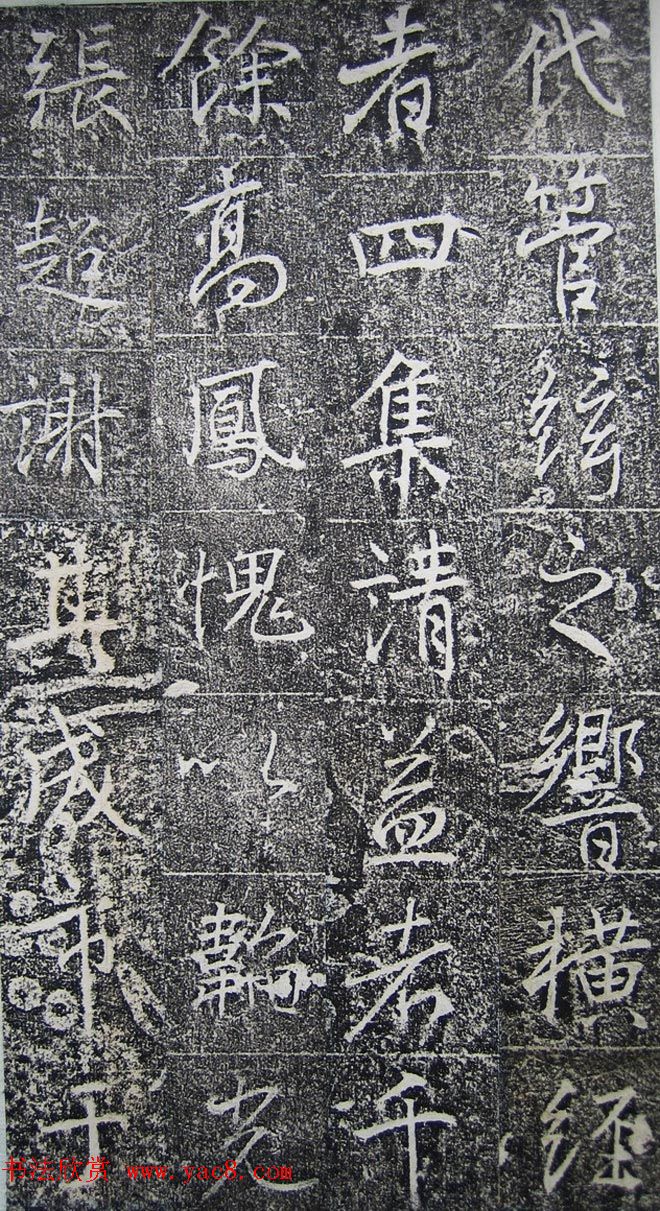 代管絃之響橫經
者四集請益者千
餘高鳳愧以韜光
張超謝其成市
书法欣赏 www.yac8.com